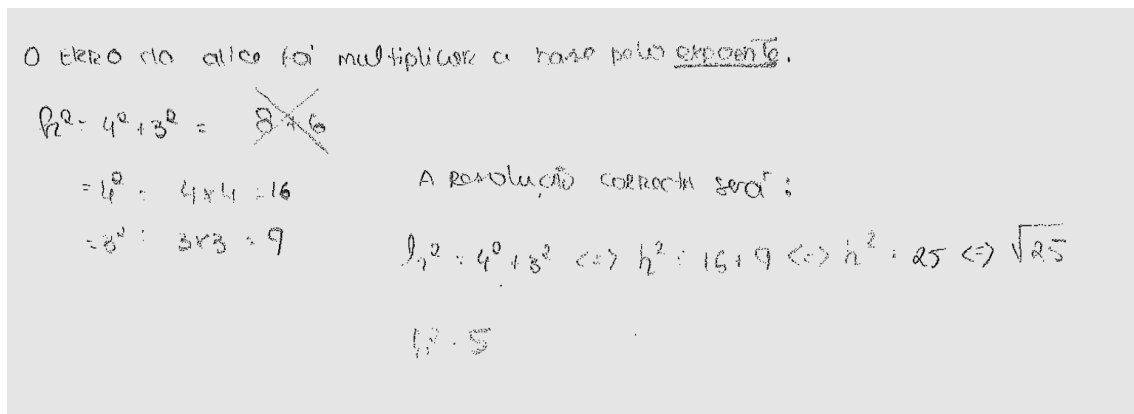 O ERRO da alice foi multiplicar a base pelo expoente.
h² = 4² + 3² = 8 + 6
= 4² = 4 x 4 = 16
= 3² = 3x3 = 9
A Resolução correcta será:
h² = 4² + 3² <=> h² = 16 + 9 <=> h² = 25 <=> √25
h² = 5